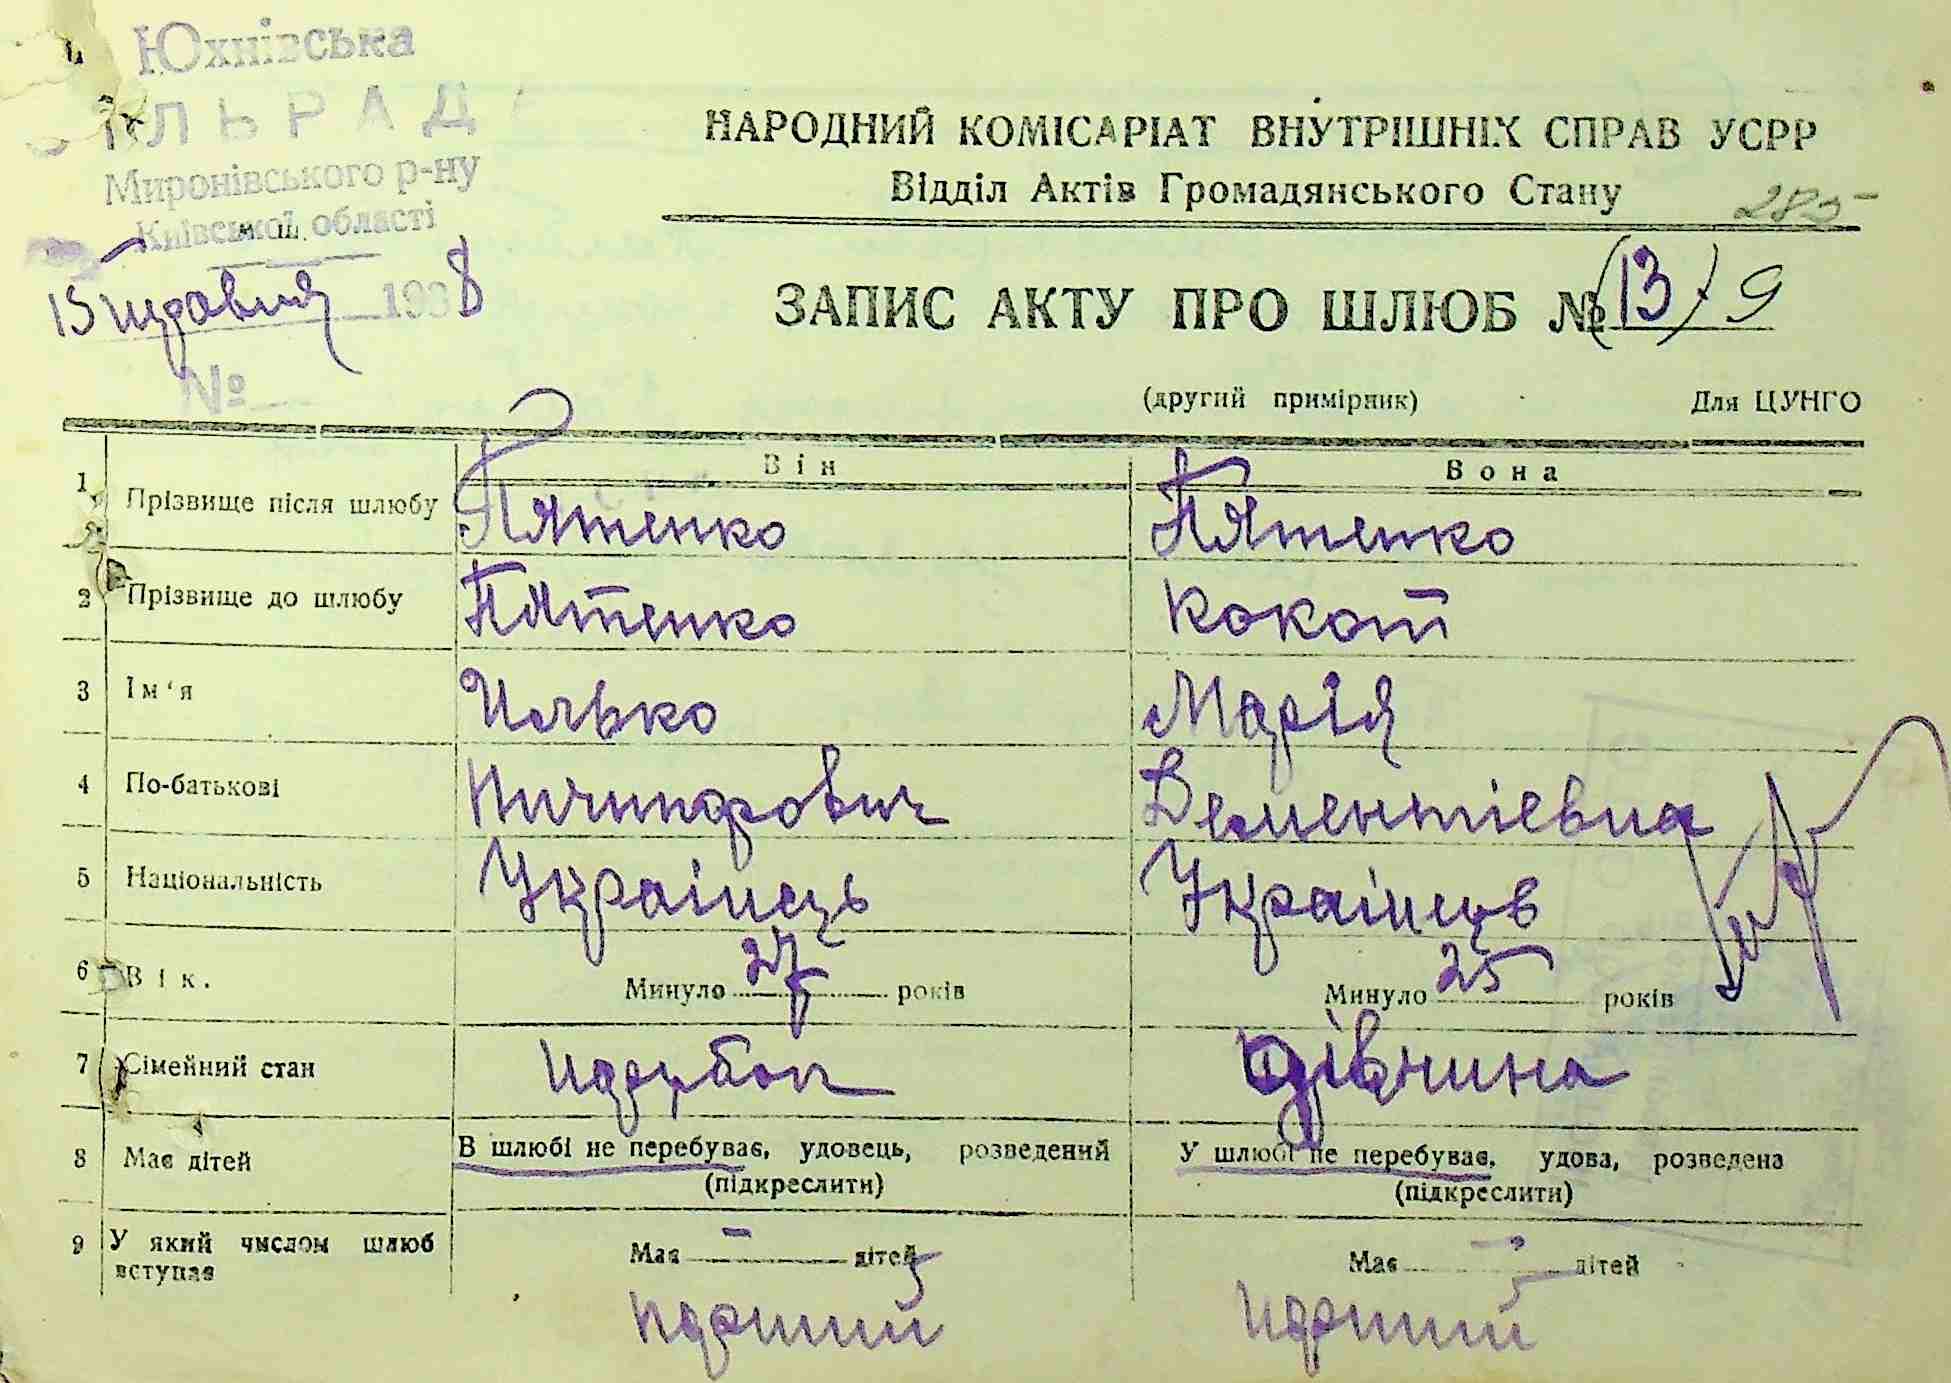 Юхнівська
СІЛЬРАДА
Миронівського р-ну
Київської області
15 травня 1938
№
НАРОДНИЙ КОМІСАРІАТ ВНУТРІШНІХ СПРАВ УСРР
Відділ Актів Громадянського Стану
285
ЗАПИС АКТУ ПРО ШЛЮБ № (13) 9
(другий примірник) Для ЦУНГО
Він Вона
1 Прізвище після шлюбу Пятенко Пятенко
2 Прізвище до шлюбу Пятенко Кокот
3 Ім'я Илько Марія
4 По-батькові Ничипорович Дементіевна
5 Національність Украінець Украінець
6 Вік. Минуло 27 років Минуло 25 років
7 Сімейний стан парубок дівчина
8 Має дітей В шлюбі не перебуває, удовець, розведений У шлюбі не перебуває, удова, розведена
(підкреслити) (підкреслити)
9 У який числом шлюб вступає Має — дітей Має — дітей
перший перший